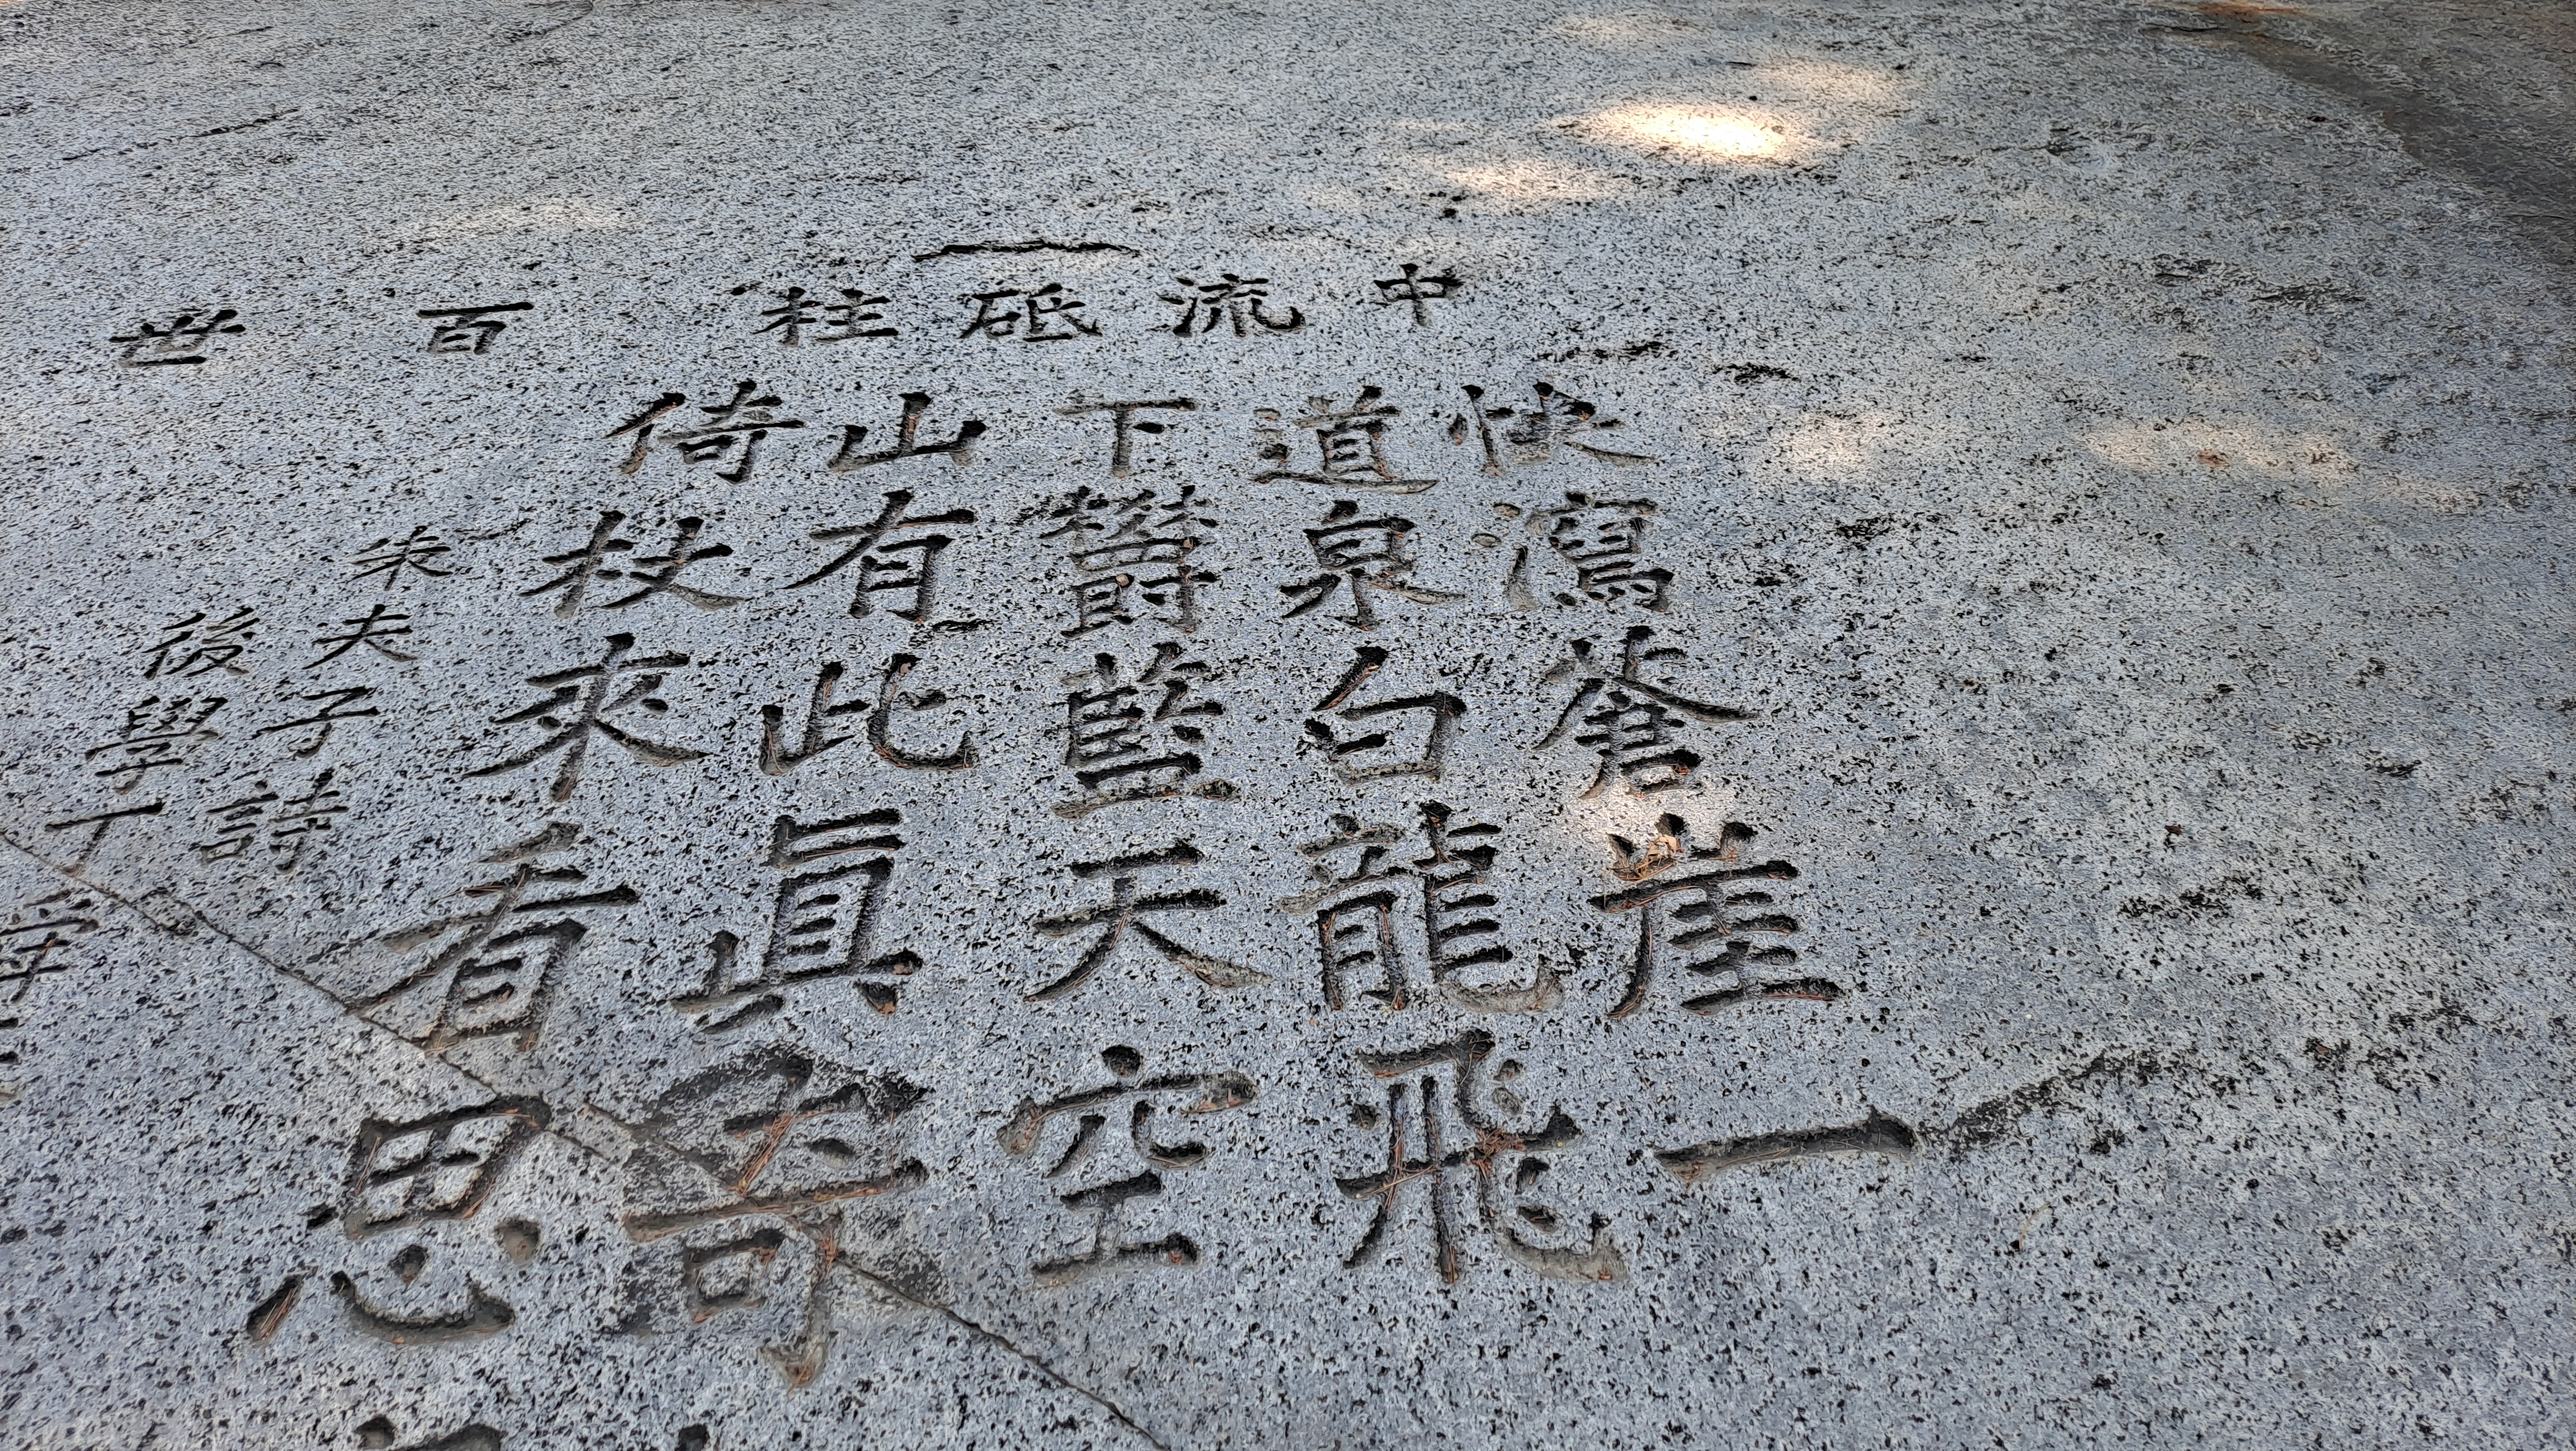 中流砥柱
百世
快瀉蒼崖一
道泉白龍飛
下欝藍天空
山有此眞奇
倚杖來看思
朱夫子詩
後學丁